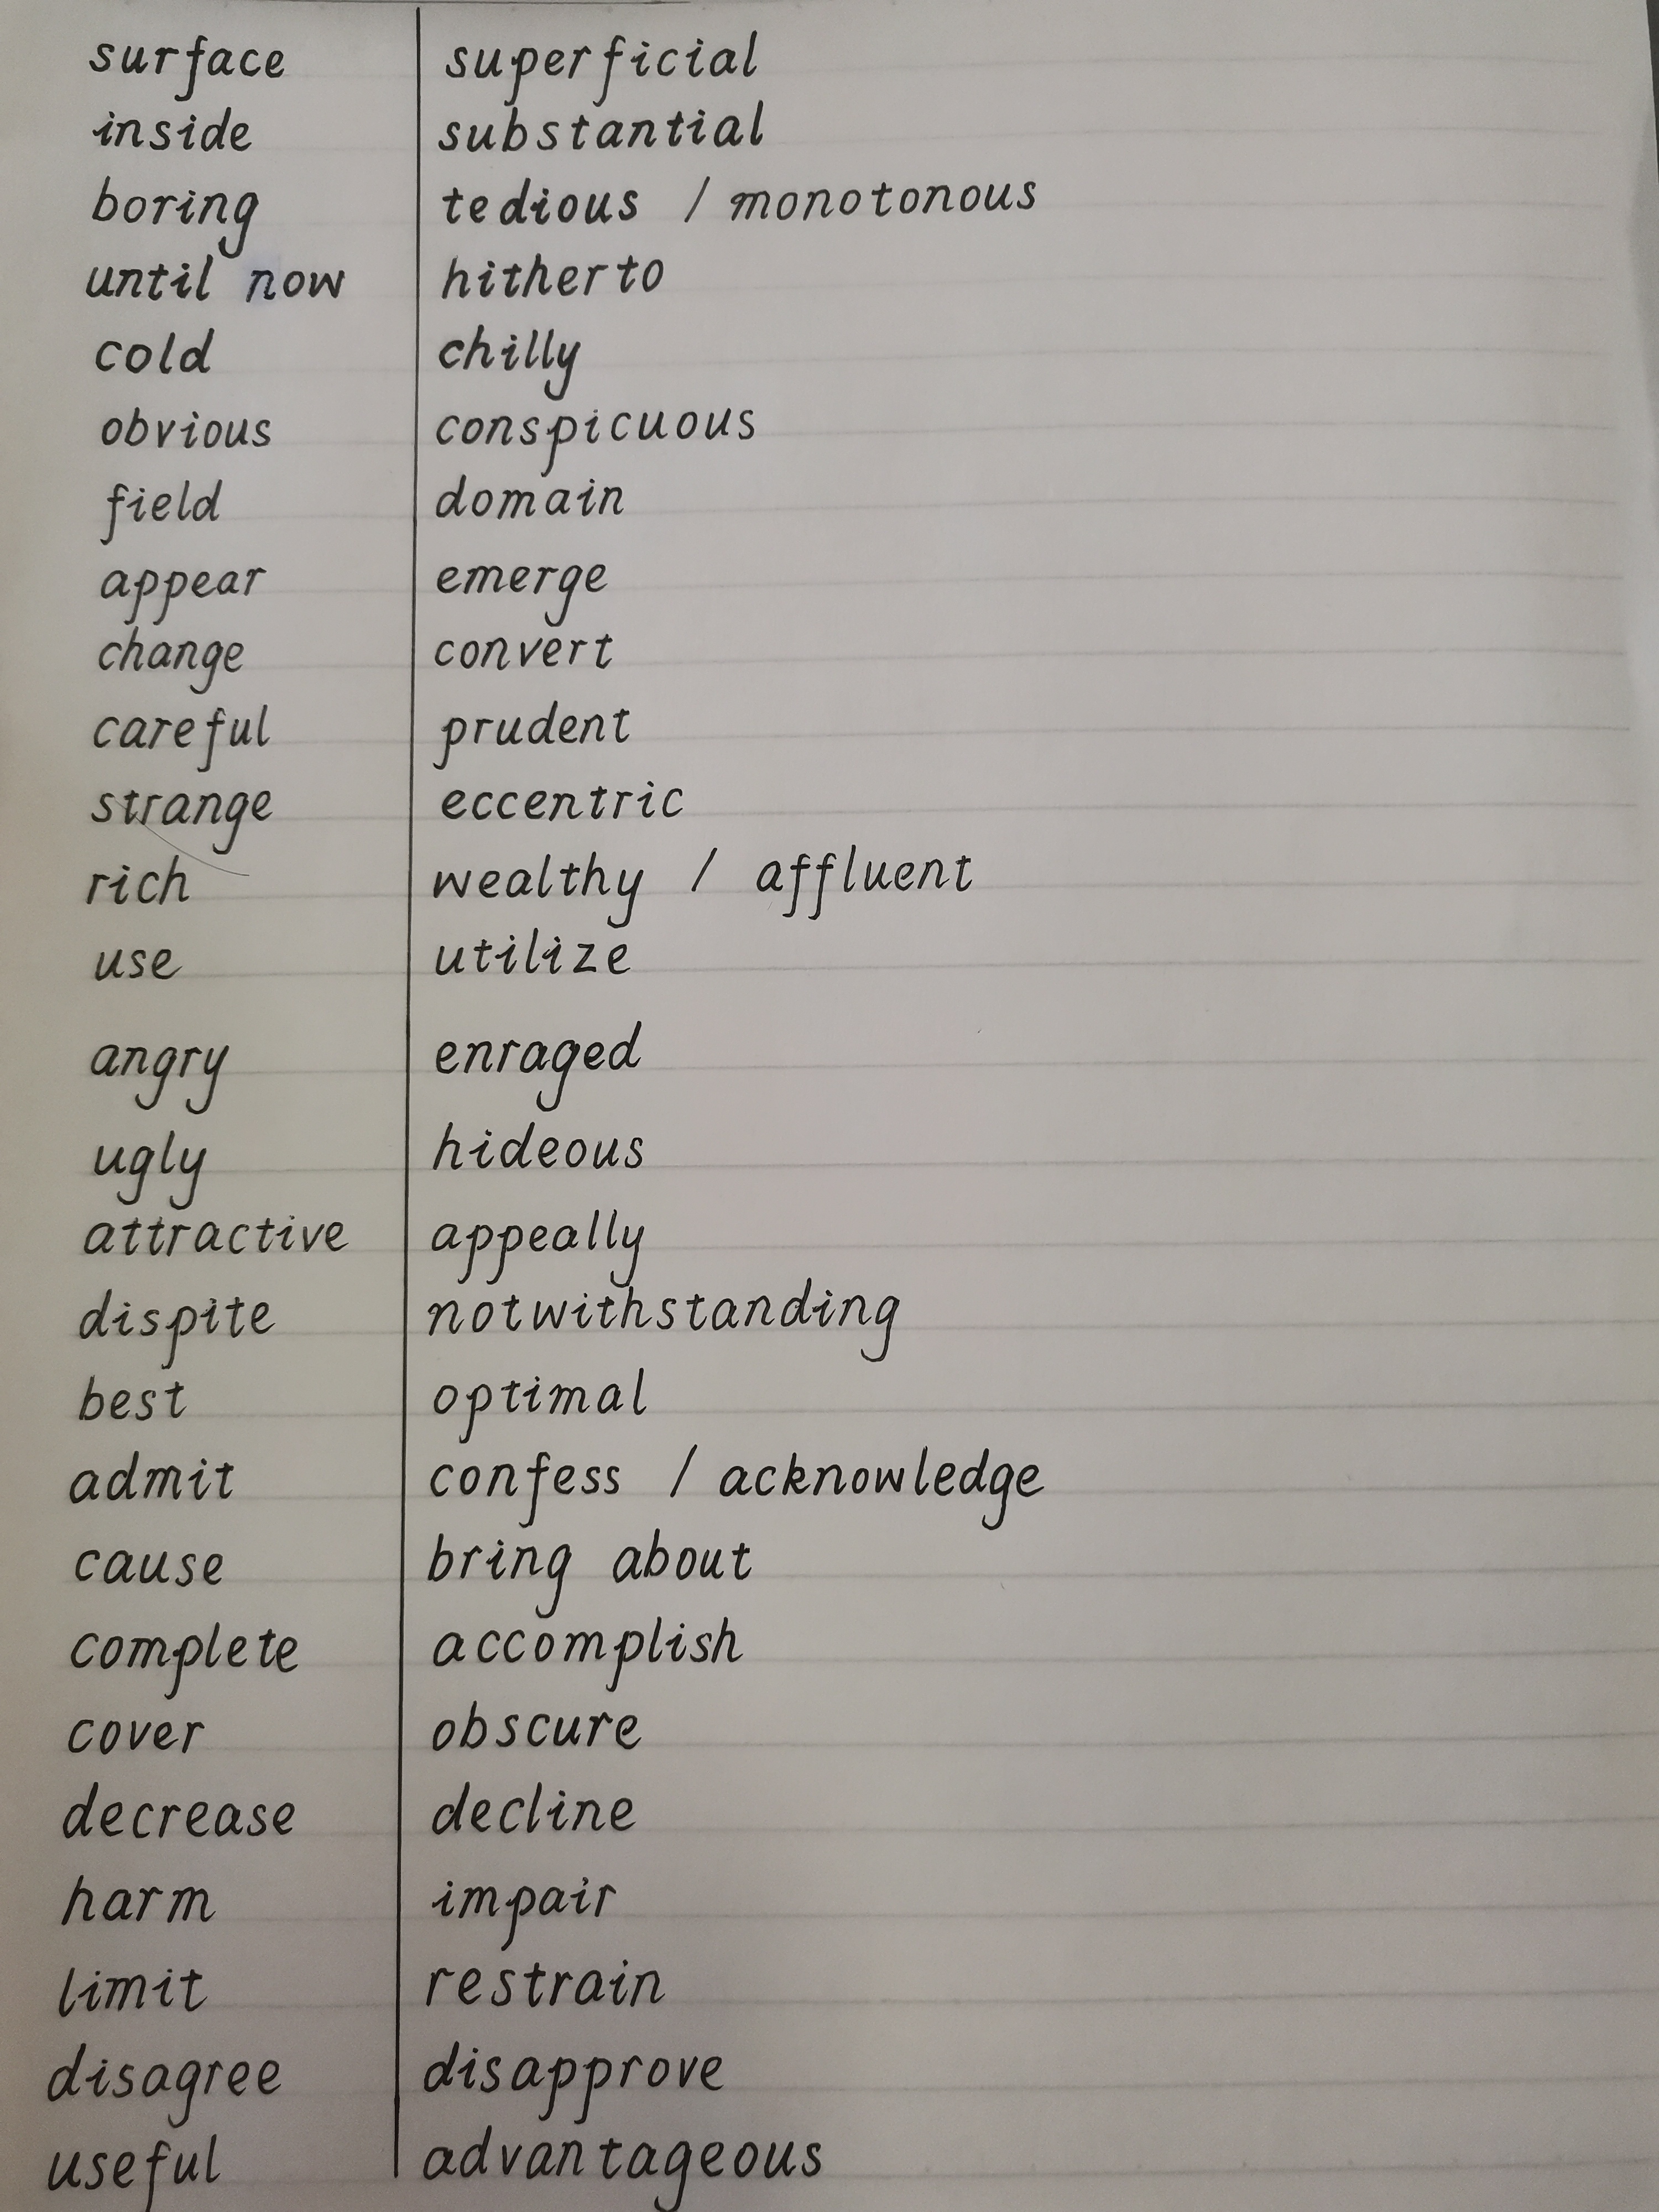 surface superficial
inside substantial
boring tedious / monotonous
until now hitherto
cold chilly
obvious conspicuous
field domain
appear emerge
change convert
careful prudent
strange eccentric
rich wealthy / affluent
use utilize
angry enraged
ugly hideous
attractive appeally
dispite notwithstanding
best optimal
admit confess / acknowledge
cause bring about
complete accomplish
cover obscure
decrease decline
harm impair
limit restrain
disagree disapprove
useful advantageous